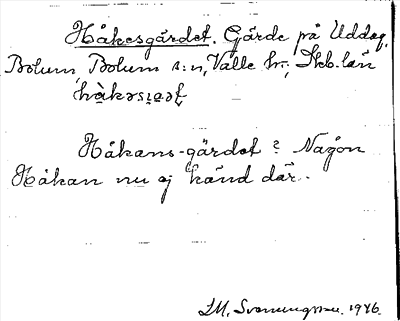 Håkesgärdet. Gärde på Uddag,
Bolum, Bolum s:n, Valle hr., Skb. län
Håkans-gärdet? Någon
Håkan nu ej känd där.
1946.